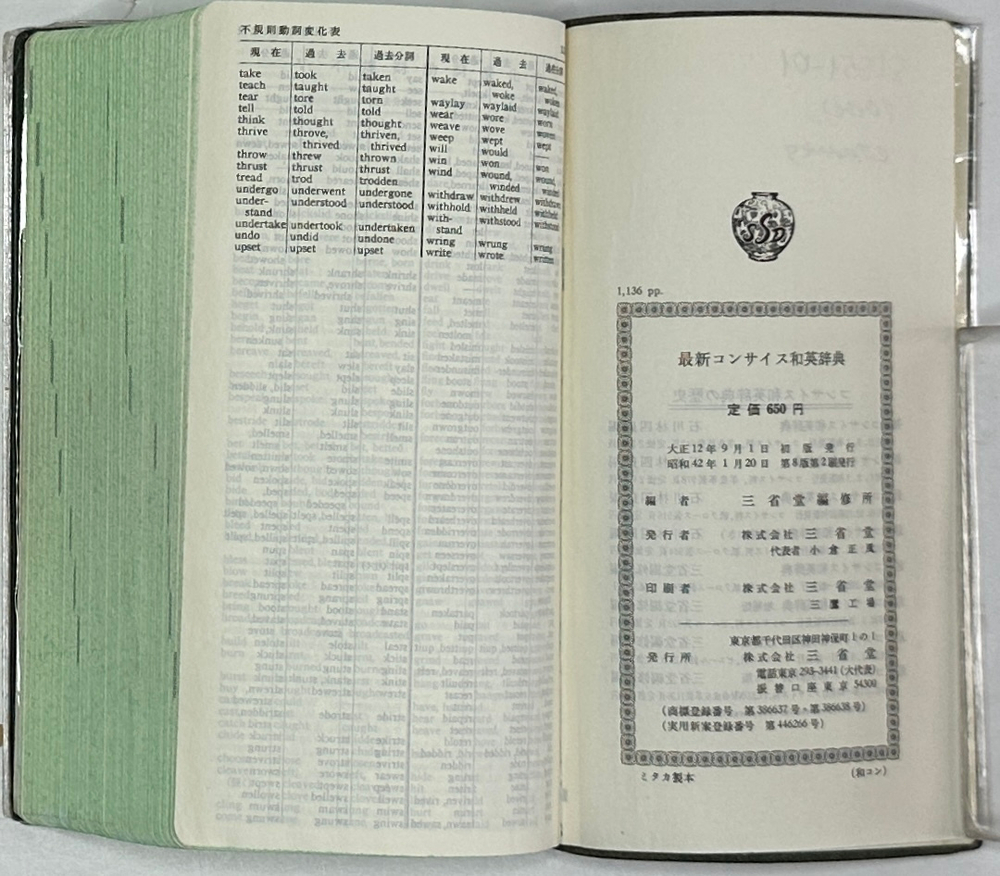 不規則動詞変化表
現在 過去 過去分詞 現在 過去
take took taken
teach taught taught
tear tore torn
tell told told
think thought thought
thrive throve, thriven,
thrived thrived
throw threw thrown
thrust thrust thrust
tread trod trodden
undergo underwent undergone
under- understood understood
stand
undertake undertook undertaken
undo undid undone
upset upset upset
wake waked, waked,
woke woken
waylay waylaid waylaid
wear wore worn
weave wove woven
weep wept wept
will would —
win won won
wind wound, wound,
winded winded
withdraw withdrew withdrawn
withhold withheld withheld
with- withstood withstood
stand
wring wrung wrung
write wrote written
SSD
1,136 pp.
最新コンサイス和英辞典
定価 650 円
大正12年9月1日 初版発行
昭和42年1月20日 第8版第2刷発行
編者 三省堂編修所
発行者 株式会社 三省堂
代表者 小倉正風
印刷者 株式会社 三省堂
三鷹工場
東京都千代田区神田神保町1の1
発行所 株式会社 三省堂
電話東京 293-3441 (大代表)
振替口座東京 54300
(商標登録番号 第386637号・第386638号)
(実用新案登録番号 第446266号)
ミタカ製本
(和コン)